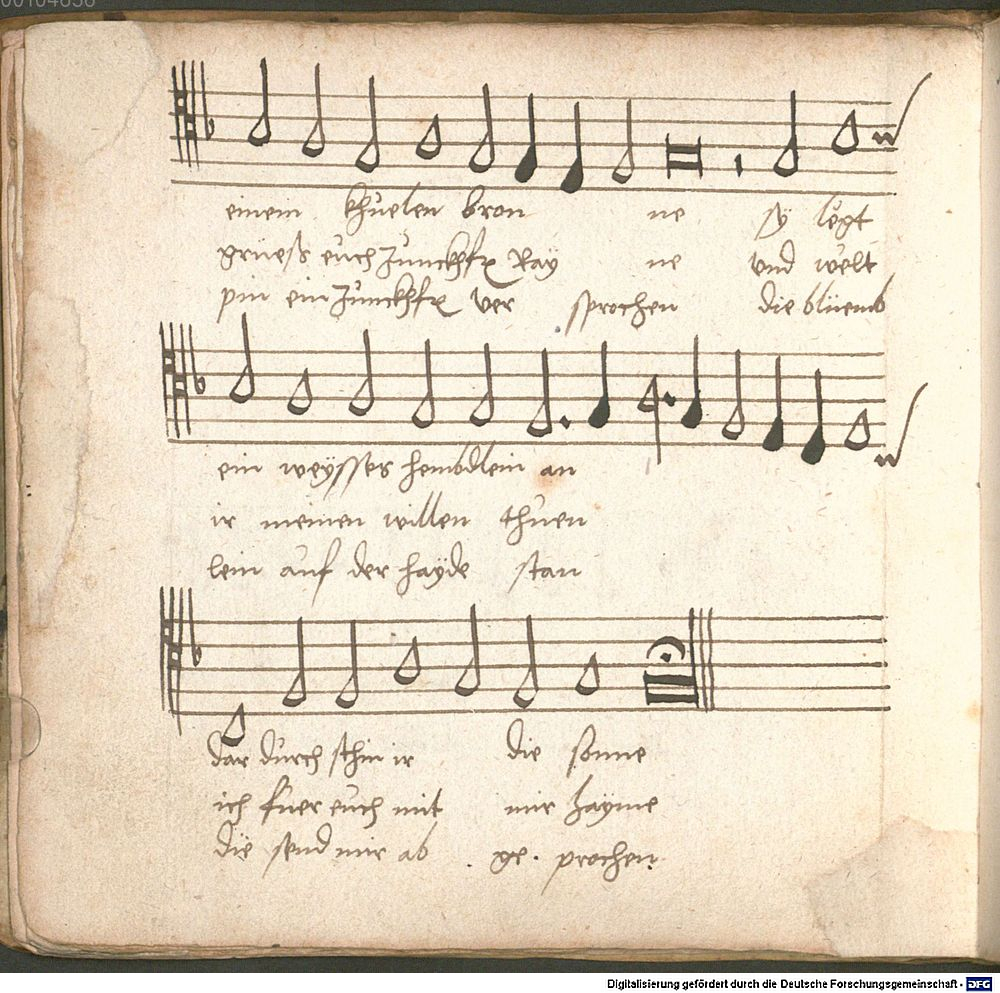 einem khuelen bron ne sy legt
grüeß euch Junckhfr Ray ne vnd welt
pin ein Junckhfr ver sprochen die blüemb
ein weÿsses hembdlein an
ir meinen willen thuen
lein auf der hayde stan
dar durch schin ir die sonne
ich fuer euch mit mir hayme
die send mir ab . ge . prochen
Digitalisierung gefördert durch die Deutsche Forschungsgemeinschaft - DFG